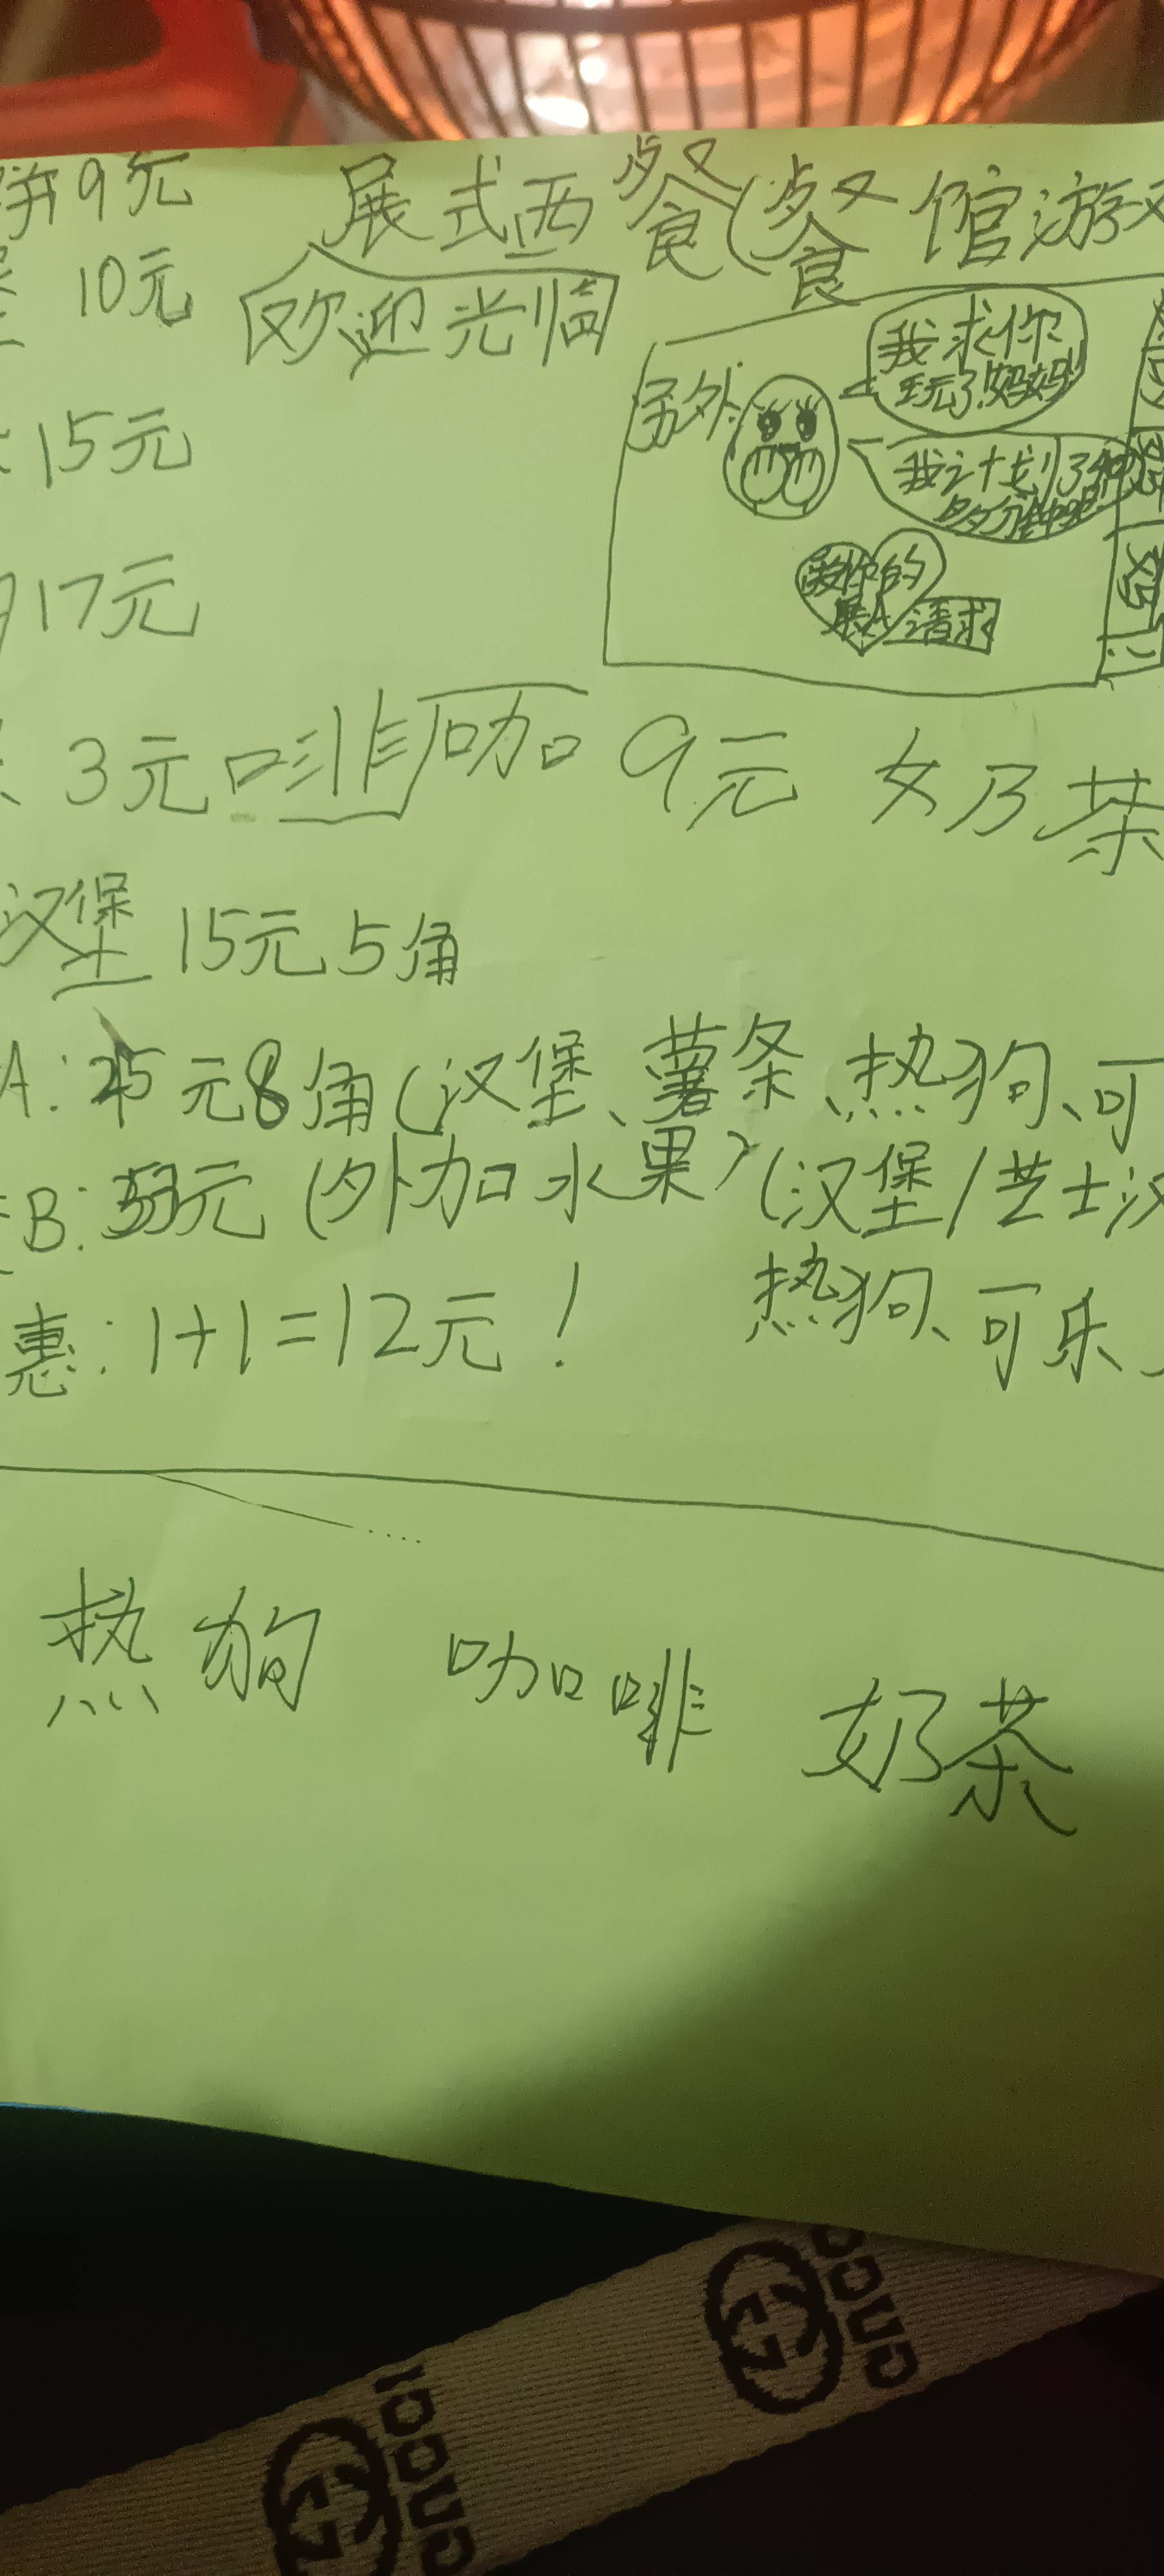 饼9元 展式西餐(餐馆游戏
10元 欢迎光临
另外:
我求你
玩了!妈妈
15元
我计划了
多分钟呢
17元
爱你的
展人请求
3元 咖啡 9元 奶茶
汉堡 15元5角
A:25元8角(汉堡、薯条、热狗、可
B:元(外加水果)(汉堡/芝士汉
惠:1+1=12元! 热狗、可乐、
热狗 咖啡 奶茶